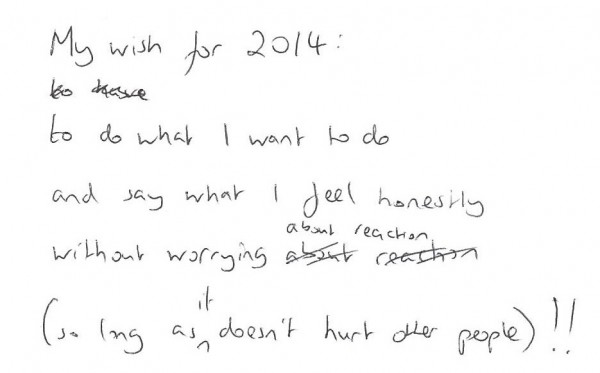 My wish for 2014:
to have
to do what I want to do
and say what I feel honestly
about reaction
without worrying about reaction
it
(so long as doesn't hurt other people)!!